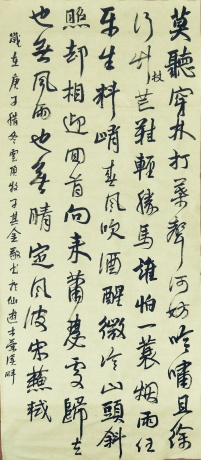 莫聽穿林打葉聲何妨吟嘯且徐
行竹杖芒鞋輕勝馬誰怕一蓑烟雨任
平生料峭春風吹酒醒微冷山頭斜
照却相迎回首向来蕭瑟處歸去
也無風雨也無晴定風波宋蘇軾
歲在庚子臘冬雲頂牧子其金敬書於仙遊木蘭溪畔